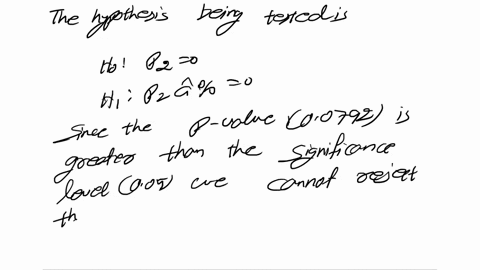 The hypothesis being tested is
H0: P2=0
H1: P2 Â% =0
Since the P-value (0.0792) is
greater than the significance
level (0.05) we cannot reject
th